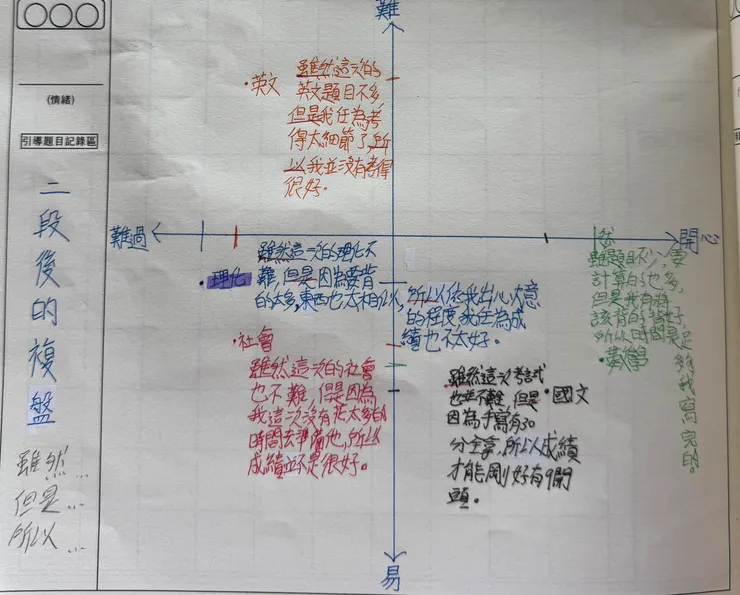 (情緒)
引導題目記錄區
二段後的複盤
雖然…
但是…
所以…
難
難過
開心
易
·英文
雖然這次的
英文題目不多
但是我任為考
得太細節了,所
以我並沒有考得
很好。
·理化
雖然這次的理化不
難,但是因為要背
的太多,東西也太相似,所以依我出心大意
的程度,我任為成
績也不太好。
·社會
雖然這次的社會
也不難,但是因為
我這次沒有花太多的
時間去準備他,所以
成績並不是很好。
·國文
雖然這次考試
也並不難,但是
因為手寫有30
分全拿,所以成績
才能剛好有9開
頭。
·數學
然
雖題目不少要
計算的也多,
但是我有將
該背的背好,
所以時間是
足夠我寫完的。